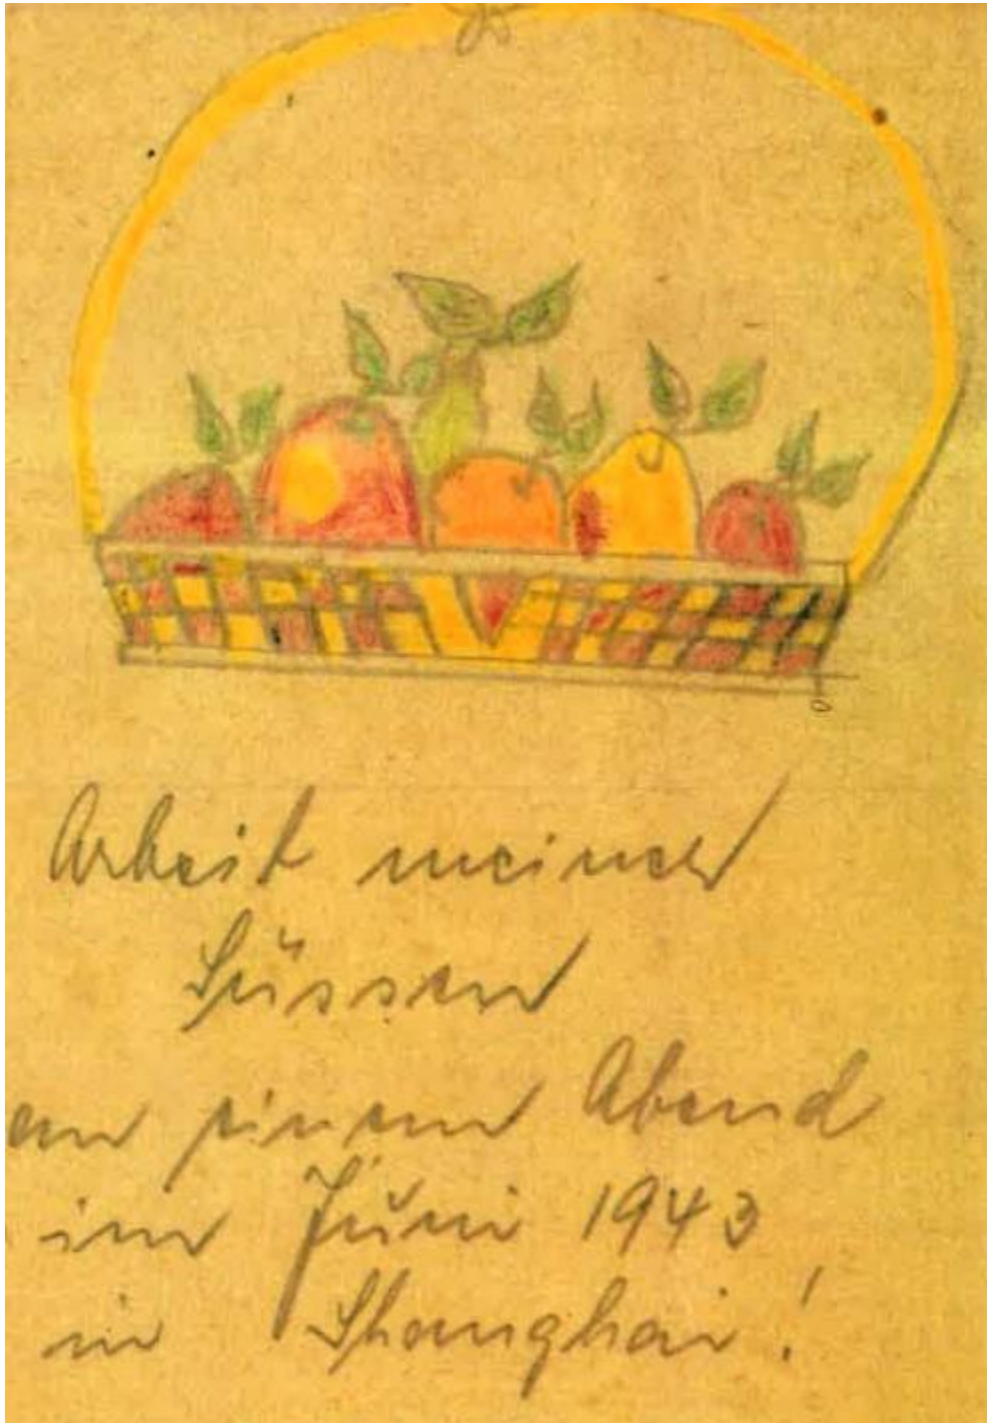 Arbeit meiner
Süssen
an einem Abend
im Juni 1943
in Shanghai!